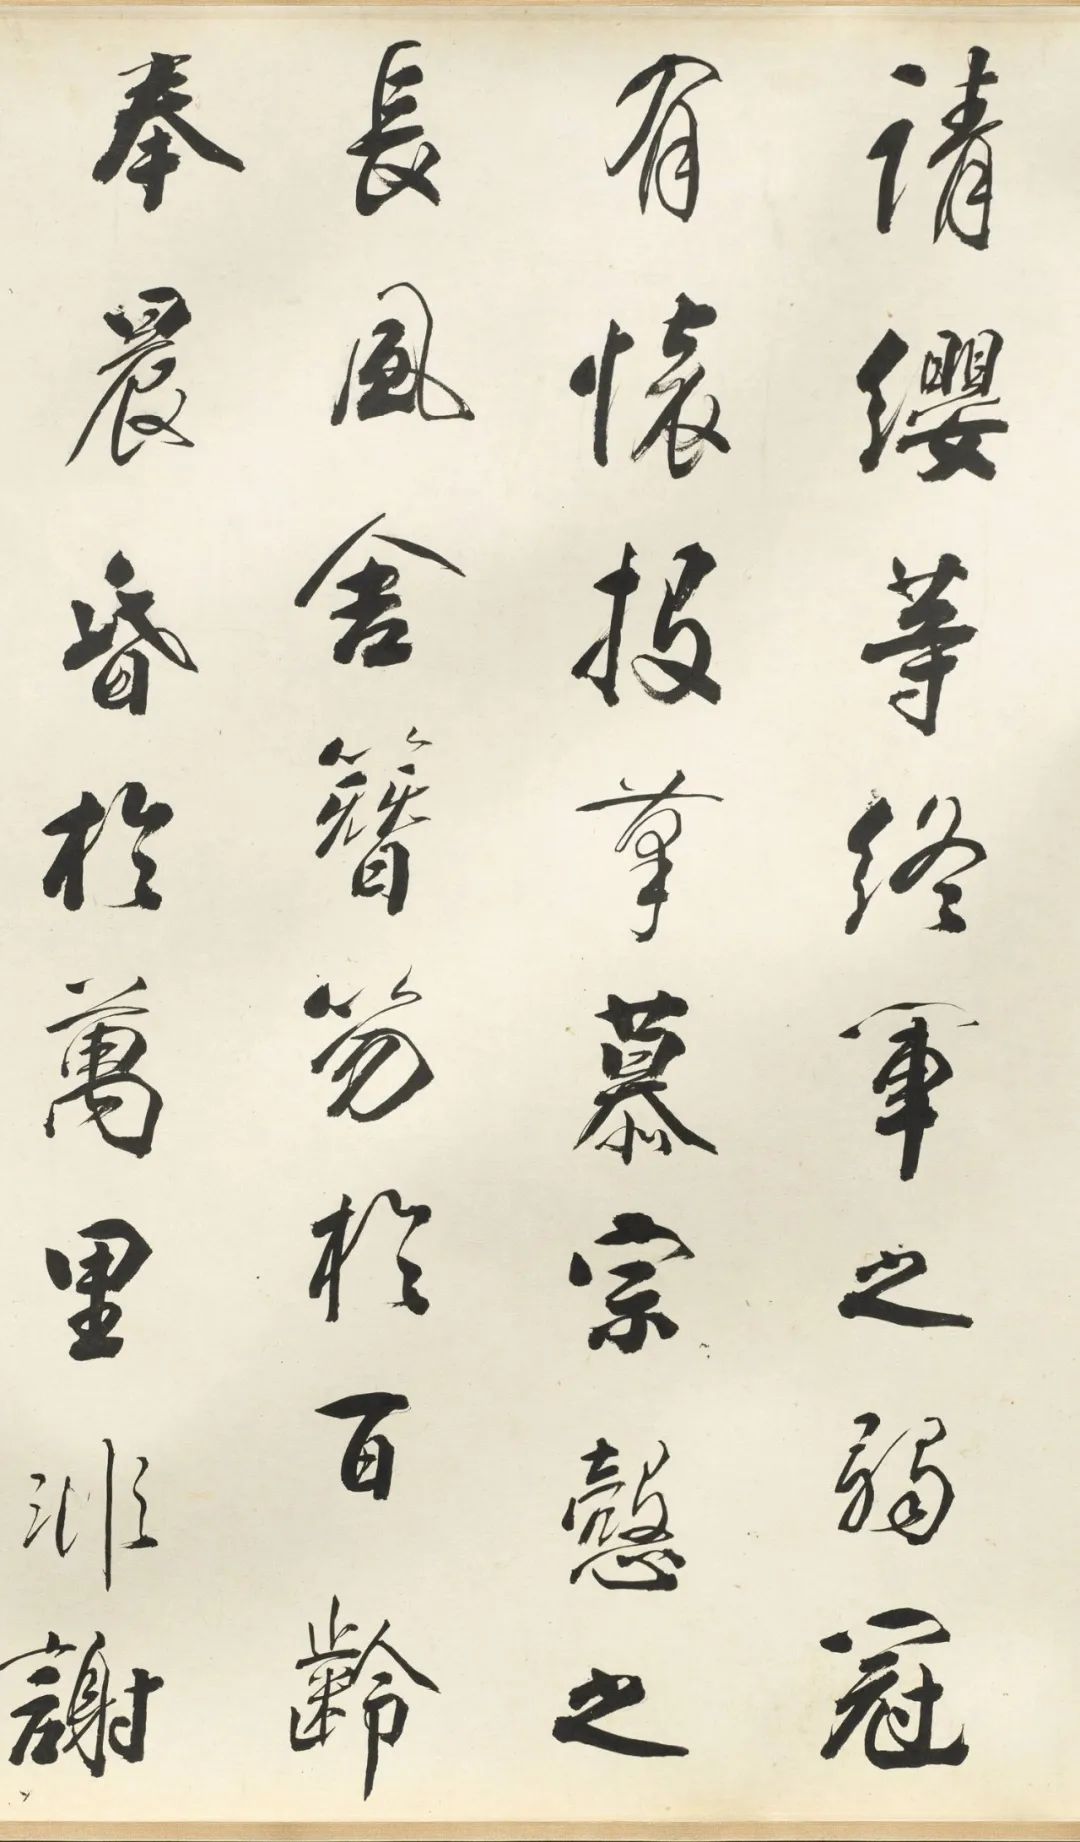 請纓等終軍之弱冠
有懷投筆慕宗愨之
長風舍簪笏於百齡
奉晨昏於萬里非謝